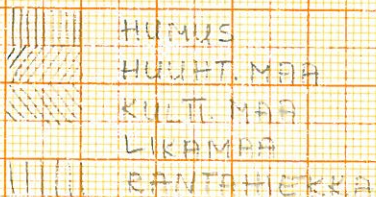 HUMUS
HUUHT. MAA
KULTT. MAA
LIKAMAA
RANTAHIEKKA